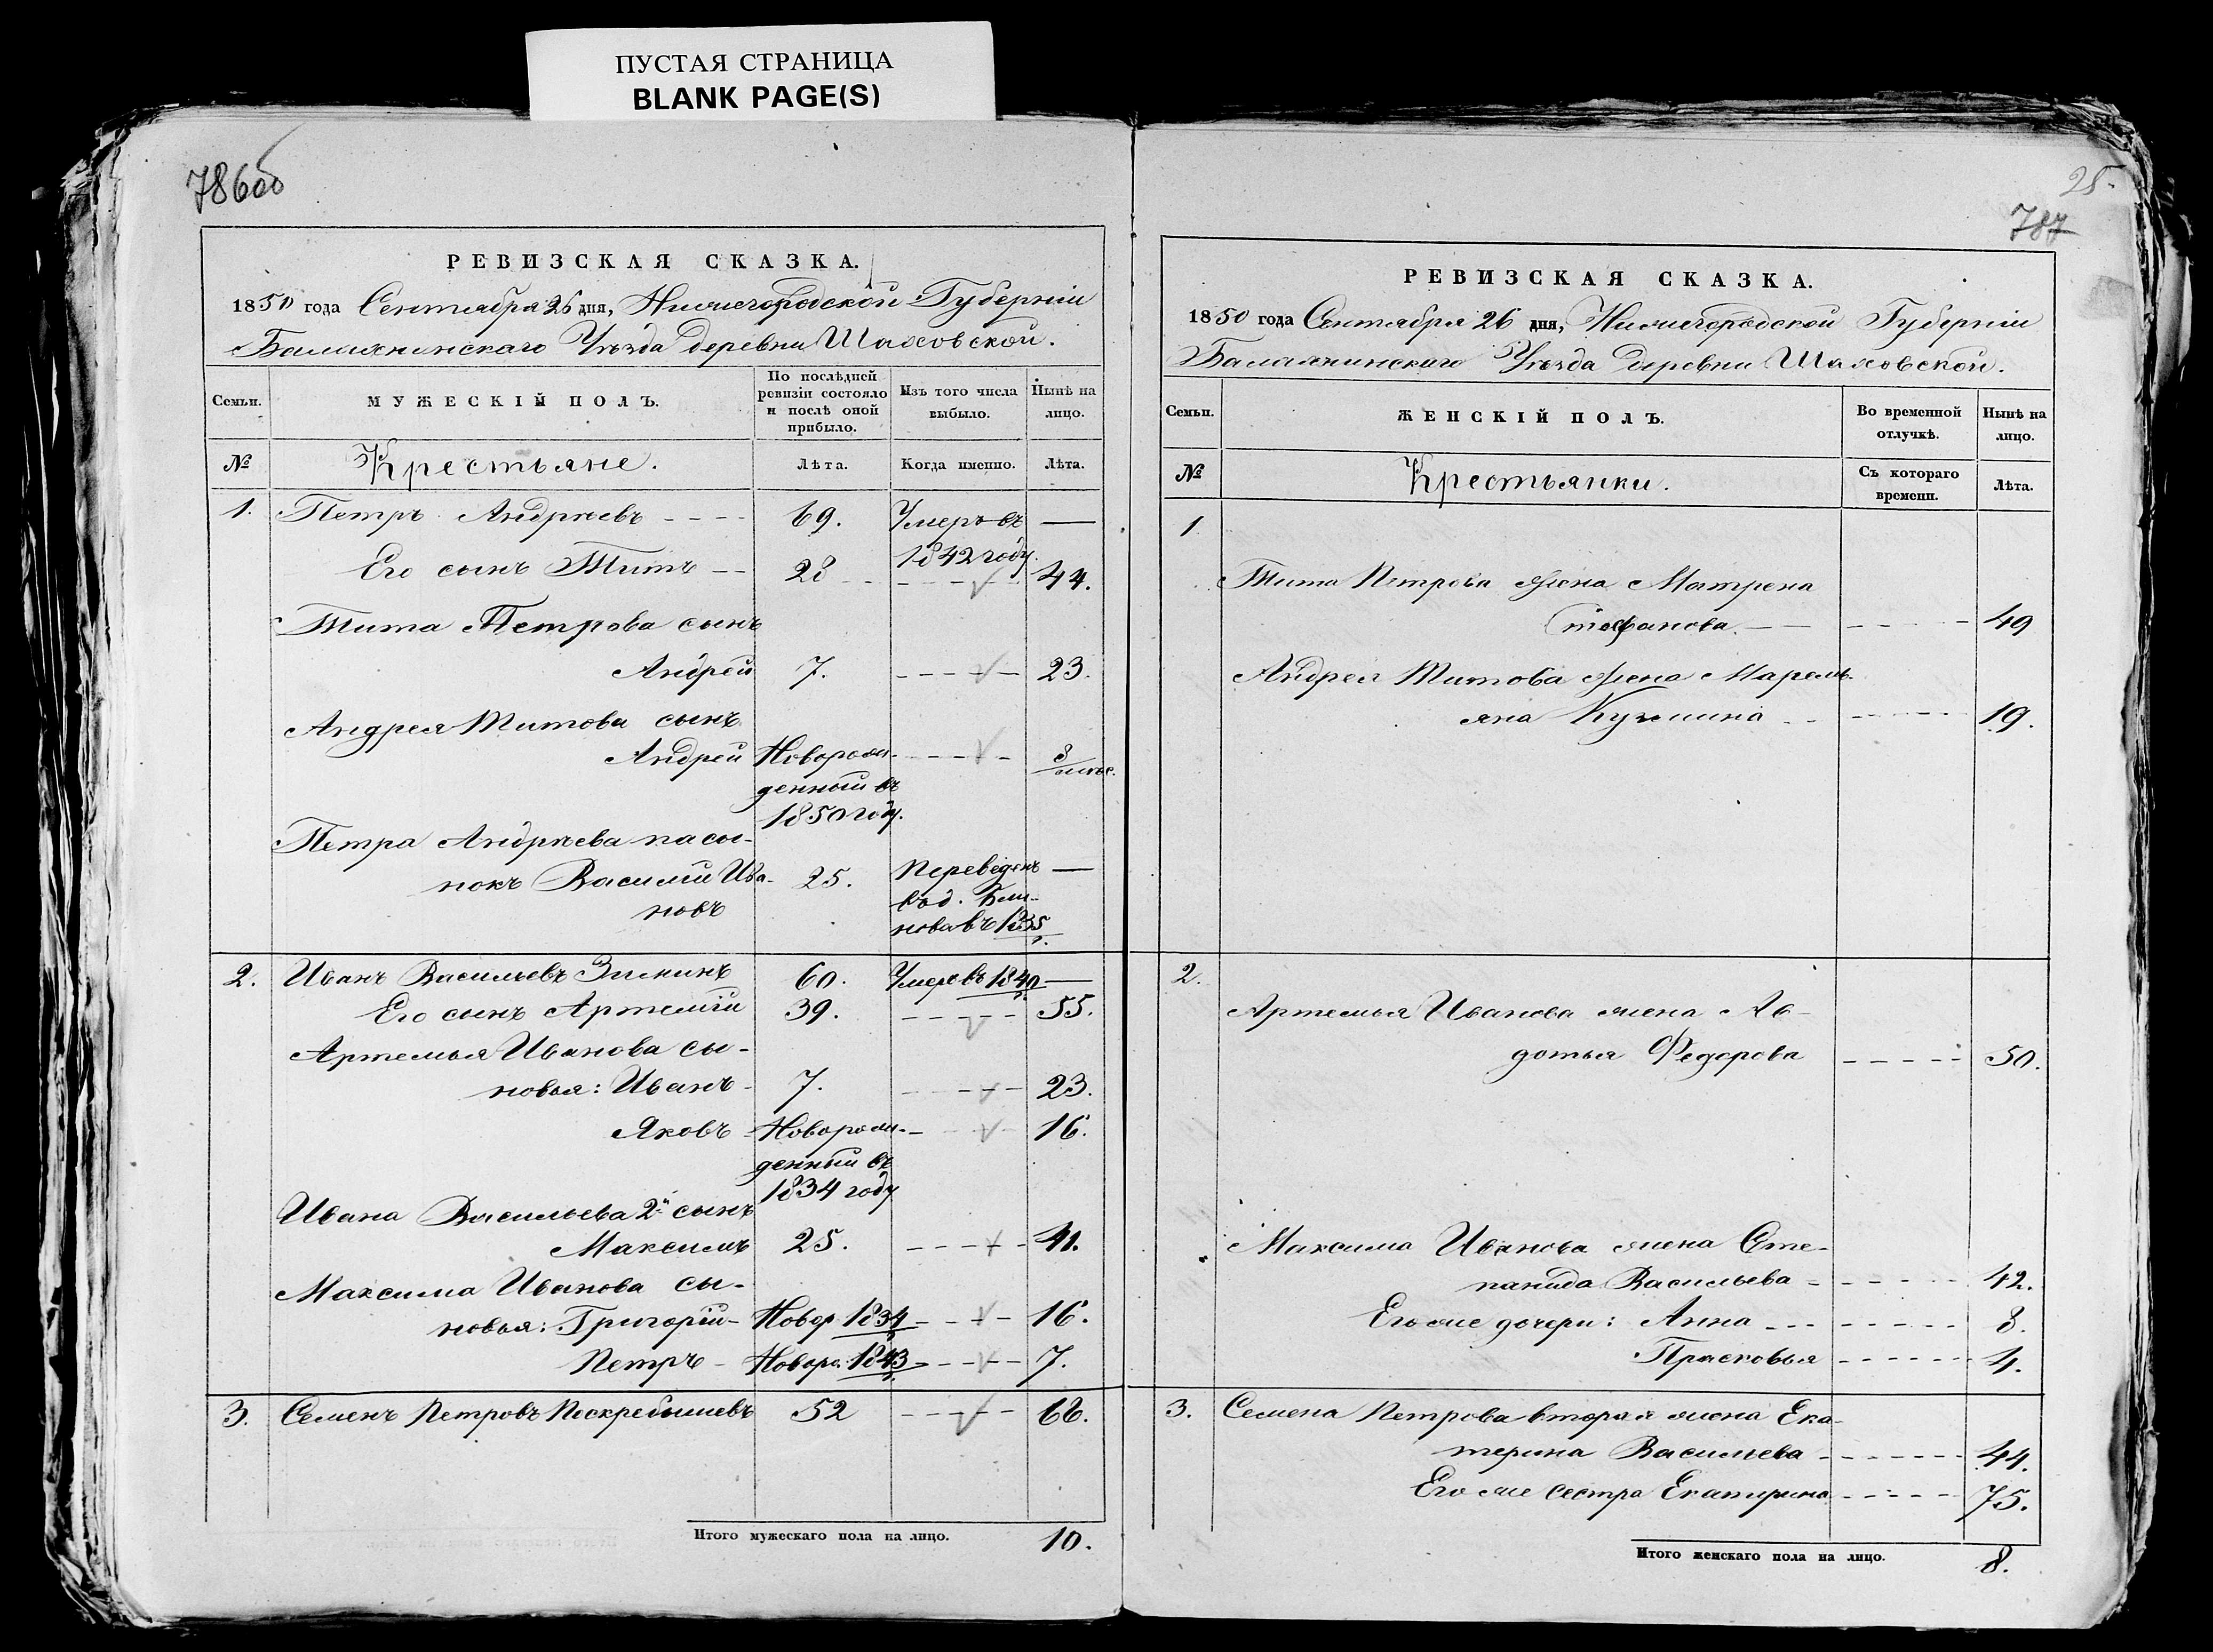 ПУСТАЯ СТРАНИЦА
BLANK PAGE(S)
786об
РЕВИЗСКАЯ СКАЗКА.
1850 года Сентября 26 дня, Нижегородской Губерніи
Балахнинскаго Уѣзда деревни Шаховской.
Семьи.
МУЖЕСКІЙ ПОЛЪ.
По послѣдней
ревизіи состояло
и послѣ оной
прибыло.
Изъ того числа
выбыло.
Нынѣ на
лицо.
№
Крестьяне.
Лѣта.
Когда именно.
Лѣта.
1. Петръ Андреевъ - - - - 69. Умеръ въ —
1842 году.
Его сынъ Титъ - - 28 - - - - - 44.
Тита Петрова сынъ
Андрей 7. - - - - 23.
Андрея Титова сынъ
Андрей Новорож- - - - - 8
денный въ мѣс.
1850 году.
Петра Андреева пасы-
нокъ Василій Ива- 25. Переведенъ —
новъ
въ д.
нова въ 1835
2. Иванъ Васильевъ Зининъ 60. Умеръ въ 1840 —
Его сынъ Артемій 39. - - - - - 55.
Артемья Иванова сы-
новья: Иванъ - 7. - - - - 23.
Яковъ - Новорож- - - - - 16.
денный въ
1834 году
Ивана Васильева 2й сынъ
Максимъ 25. - - - - - 41.
Максима Иванова сы-
новья: Григорій - Новор. 1834 - - - - 16.
Петръ - Новоро. 1843 - - - - 7.
3. Семенъ Петровъ Поскребышевъ 52 - - - - - 68.
Итого мужескаго пола на лицо. 10.
25.
787
РЕВИЗСКАЯ СКАЗКА.
1850 года Сентября 26 дня, Нижегородской Губерніи
Балахнинскаго Уѣзда деревни Шаховской.
Семьи.
ЖЕНСКІЙ ПОЛЪ.
Во временной
отлучкѣ.
Нынѣ на
лицо.
№
Крестьянки.
Съ котораго
времени.
Лѣта.
1
Тита Петрова жена Матрена
Стефанова. — — - - - - - 49
Андрея Титова жена Маремь-
яна Кузмина - - - - - - - 19.
2.
Артемья Иванова жена Ав-
дотья Федорова - - - - - 50.
Максима Иванова жена Сте-
панида Васильева - - - - - - 42.
Его же дочери: Анна - - - - - - - - 8.
Прасковья - - - - - - 4.
3. Семена Петрова вторая жена Ека-
терина Васильева - - - - - - 44.
Его же сестра Екатерина - - - - - 75.
Итого женскаго пола на лицо. 8.